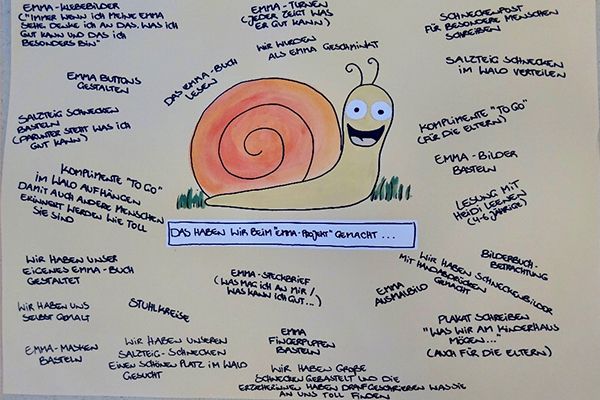 EMMA-KLEBEBILDER
("IMMER WENN ICH MEINE EMMA
SEHE DENKE ICH AN DAS, WAS ICH
GUT KANN UND DAS ICH
BESONDERS BIN"
EMMA-TURNEN
(JEDER ZEIGT WAS
ER GUT KANN)
SCHNECKENPOST
FÜR BESONDERE MENSCHEN
SCHREIBEN
WIR WURDEN
ALS EMMA GESCHMINKT
DAS EMMA-BUCH
LESEN
SALZTEIG SCHNECKEN
IM WALD VERTEILEN
EMMA BUTTONS
GESTALTEN
SALZTEIG SCHNECKEN
BASTELN
(DARUNTER STEHT WAS ICH
GUT KANN)
KOMPLIMENTE "TO GO"
(FÜR DIE ELTERN)
EMMA-BILDER
BASTELN
KOMPLIMENTE "TO GO"
IM WALD AUFHÄNGEN
DAMIT AUCH ANDERE MENSCHEN
ERINNERT WERDEN WIE TOLL
SIE SIND
LESUNG MIT
HEIDI LEENEN
(4-6 JÄHRIGE)
DAS HABEN WIR BEIM "EMMA-PROJEKT" GEMACHT ...
WIR HABEN UNSER
EIGENES EMMA-BUCH
GESTALTET
EMMA-STECKBRIEF
(WAS MAG ICH AN MIR /
WAS KANN ICH GUT...)
EMMA
AUSMALBILD
WIR HABEN SCHNECKENBILDER
MIT HANDABDRÜCKEN
GEMACHT
BILDERBUCH-
BETRACHTUNG
WIR HABEN UNS
SELBST GEMALT
STUHLKREISE
PLAKAT SCHREIBEN
"WAS WIR AM KINDERHAUS
MÖGEN..."
(AUCH FÜR DIE ELTERN)
EMMA-MASKEN
BASTELN
WIR HABEN UNSEREN
SALZTEIG-SCHNECKEN
EINEN SCHÖNEN PLATZ IM WALD
GESUCHT
EMMA
FINGERPUPPEN
BASTELN
WIR HABEN GROẞE
SCHNECKEN GEBASTELT UND DIE
ERZIEHERINNEN HABEN DRAUFGESCHRIEBEN WAS SIE
AN UNS TOLL FINDEN